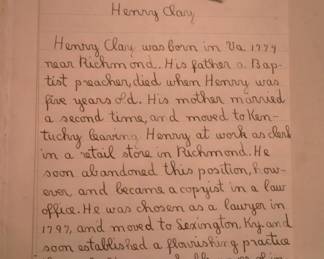 Henry Clay
Henry Clay was born in Va. 1777
near Richmond. His father a Bap-
tist preacher, died when Henry was
five years old. His mother married
a second time, and moved to Ken-
tuchy leaving Henry at work as clerk
in a retail store in Richmond. He
soon abandoned this position, how-
ever, and became a copyist in a law
office. He was chosen as a lawyer in
1797, and moved to Lexington, Ky. and
soon established a flourishing practice